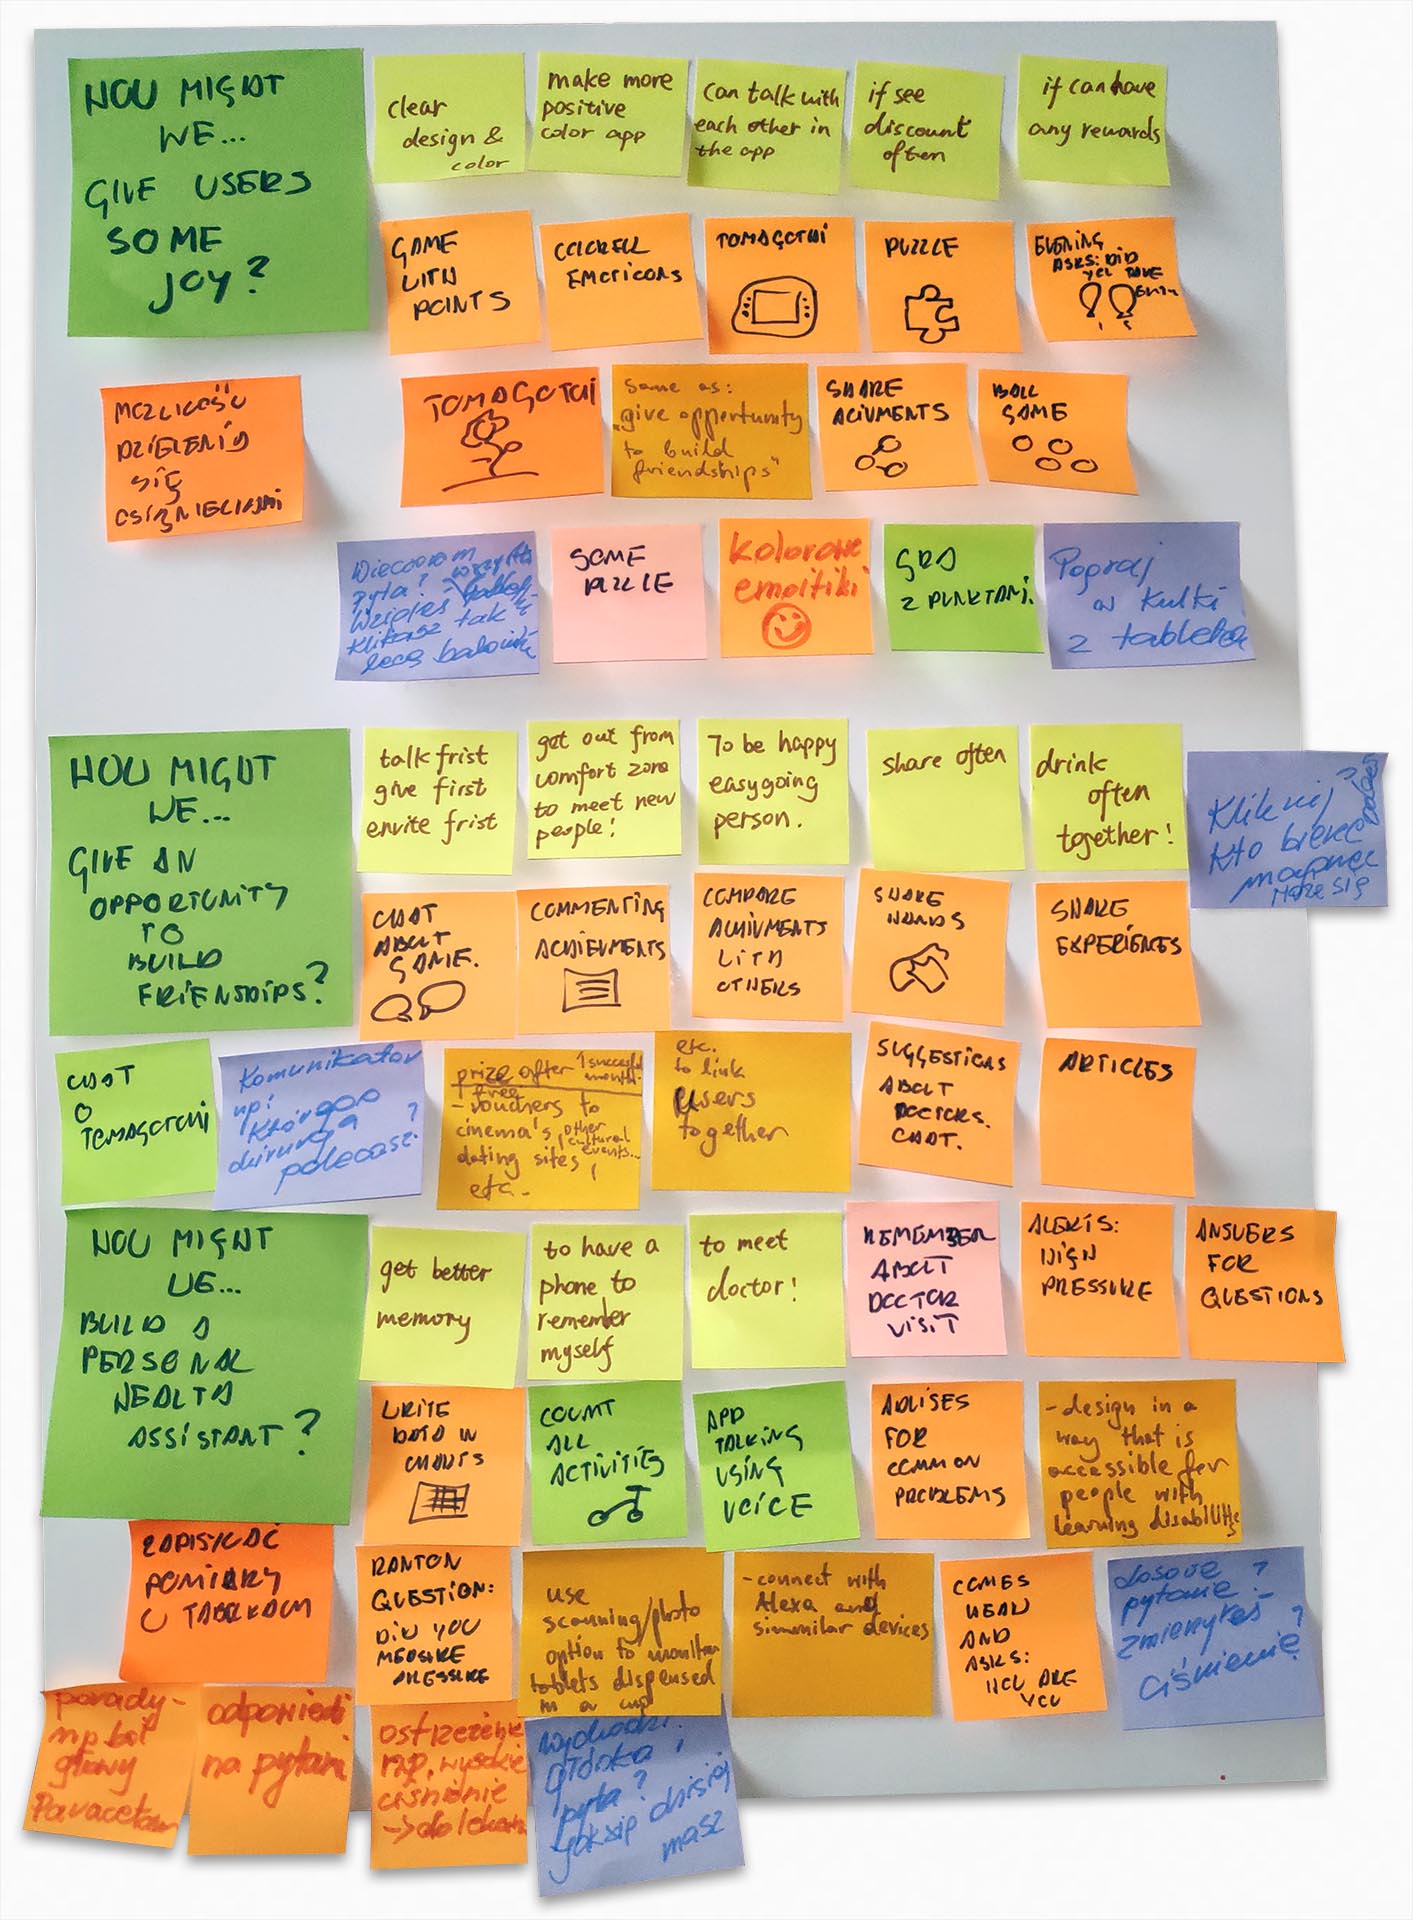 HOW MIGHT
WE...
GIVE USERS
SOME
JOY?
clear
design &
color
make more
positive
color app
can talk with
each other in
the app
if see
discount
often
if can have
any rewards
GAME
WITH
POINTS
EMOTICONS
TOMAGOTHI
PUZZLE
EVENING
ASKS: DID
YOU TAKE
MOZLIWOŚĆ
DZIELENIA
SIĘ
OSIĄNIECIAMI
TOMAGOTCHI
Same as:
„give opportunity
to build
friendships"
SHARE
ACIVMENTS
BALL
GAME
Wieczorem
pyta?
Klikasz tak
SOME
PUZZLE
kolorowe
emoitiki
GRA
Z PUNKTAMI.
Pograj
w kulki
z tabletek
HOW MIGHT
WE...
GIVE AN
OPPORTUNITY
TO
BUILD
FRIENSHIPS?
talk frist
give first
envite frist
get out from
comfort zone
to meet new
people!
To be happy
easygoing
person.
share often
drink
often
together!
Kliknij
Kto bierze
CHAT
ABOUT
GAME.
COMMENTING
ACHIEVMENTS
COMPARE
ACHIVMENTS
WITH
OTHERS
SHAKE
HANDS
SHARE
EXPERIENCES
CHAT
O
TOMAGOTCHI
Komunikator
np:
Którego
chirurga
polecasz?
prize after 1 succesful
month.
free
- vouchers to
cinema's, other
cultural
dating sites, events...
etc.
etc.
to link
users
together
SUGGESTIONS
ABOUT
DOCTORS.
CHAT.
ARTICLES
HOW MIGHT
WE...
BUILD A
PERSONAL
HEALTH
ASSISTANT?
get better
memory
to have a
phone to
remember
myself
to meet
doctor!
REMEMBER
ABOUT
DOCTOR
VISIT
ALERTS:
HIGH
PRESSURE
ANSWERS
FOR
QUESTIONS
WRITE
DATA IN
CHARTS
COUNT
ALL
ACTIVITIES
APP
TALKING
USING
VOICE
ADISES
FOR
COMMON
PROBLEMS
- design in a
way that is
accessible for
people with
learning disability
ZAPISYWAĆ
POMIARY
W TABELKACH
RANTON
QUESTION:
DID YOU
MEASURE
PRESSURE
use
scanning/photo
option to monitor
tablets dispensed
in a cup
- connect with
Alexa and
simmilar devices
COMES
HEAD
AND
ASKS:
HOW ARE
YOU
Losowe
pytanie?
zmierzyłeś
ciśnienie?
porady -
np ból
głowy
Paracetam
odpowiedi
na pytani
ostrzeżenie
np. wysokie
ciśnienie
-> do lekarza
wychodzi
główka i
pyta?
jak się dzisiaj
masz